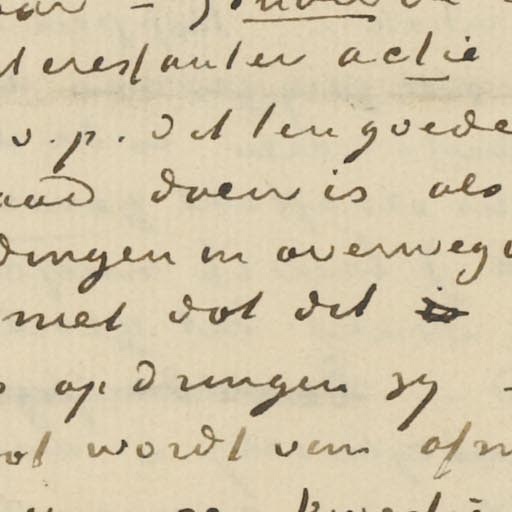 teressanter actie
v.p. dit ten goede
aad doen is als
dingen in overweg
met dat dit is
opdringen zy -
wordt van